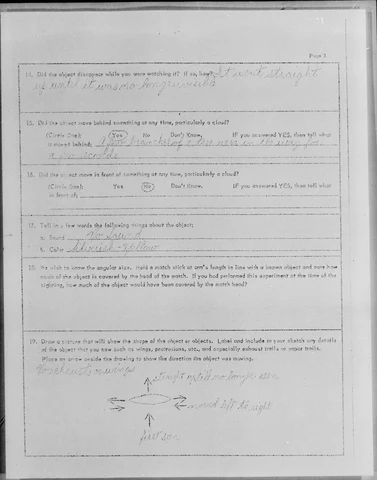 Page 3
14. Did the object disappear while you were watching it? If so, how? It went straight
up until it was no longer visible
15. Did the object move behind something at any time, particularly a cloud?
(Circle One): Yes No Don't Know. IF you answered YES, then tell what
it moved behind: A few branches of a tree were in the way for
a few seconds
16. Did the object move in front of something at any time, particularly a cloud?
(Circle One): Yes No Don't Know. IF you answered YES, then tell what
in front of:
17. Tell in a few words the following things about the object:
a. Sound No sound
b. Color Yellow
18. We wish to know the angular size. Hold a match stick at arm's length in line with a known object and note how
much of the object is covered by the head of the match. If you had performed this experiment at the time of the
sighting, how much of the object would have been covered by the match head?
19. Draw a picture that will show the shape of the object or objects. Label and include in your sketch any details
of the object that you saw such as wings, protrusions, etc., and especially exhaust trails or vapor trails.
Place an arrow beside the drawing to show the direction the object was moving.
No exhaust or wings
straight up till no longer seen
moved left to right
first saw